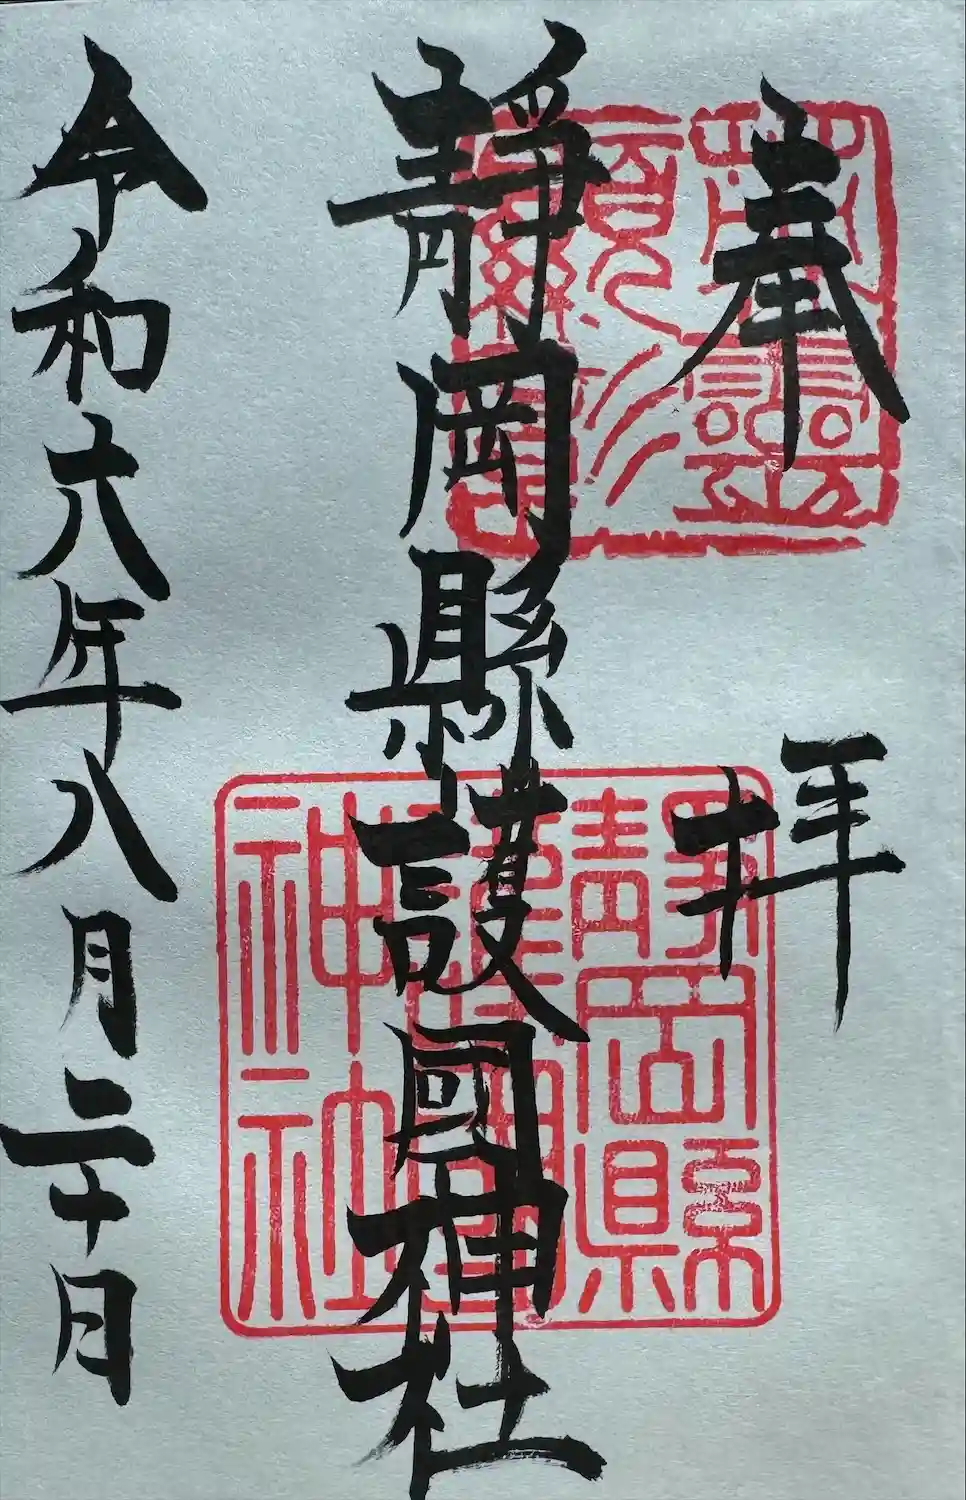 奉拝
靜岡縣護國神社
令和六年八月二十日
靜岡縣
護國
神社